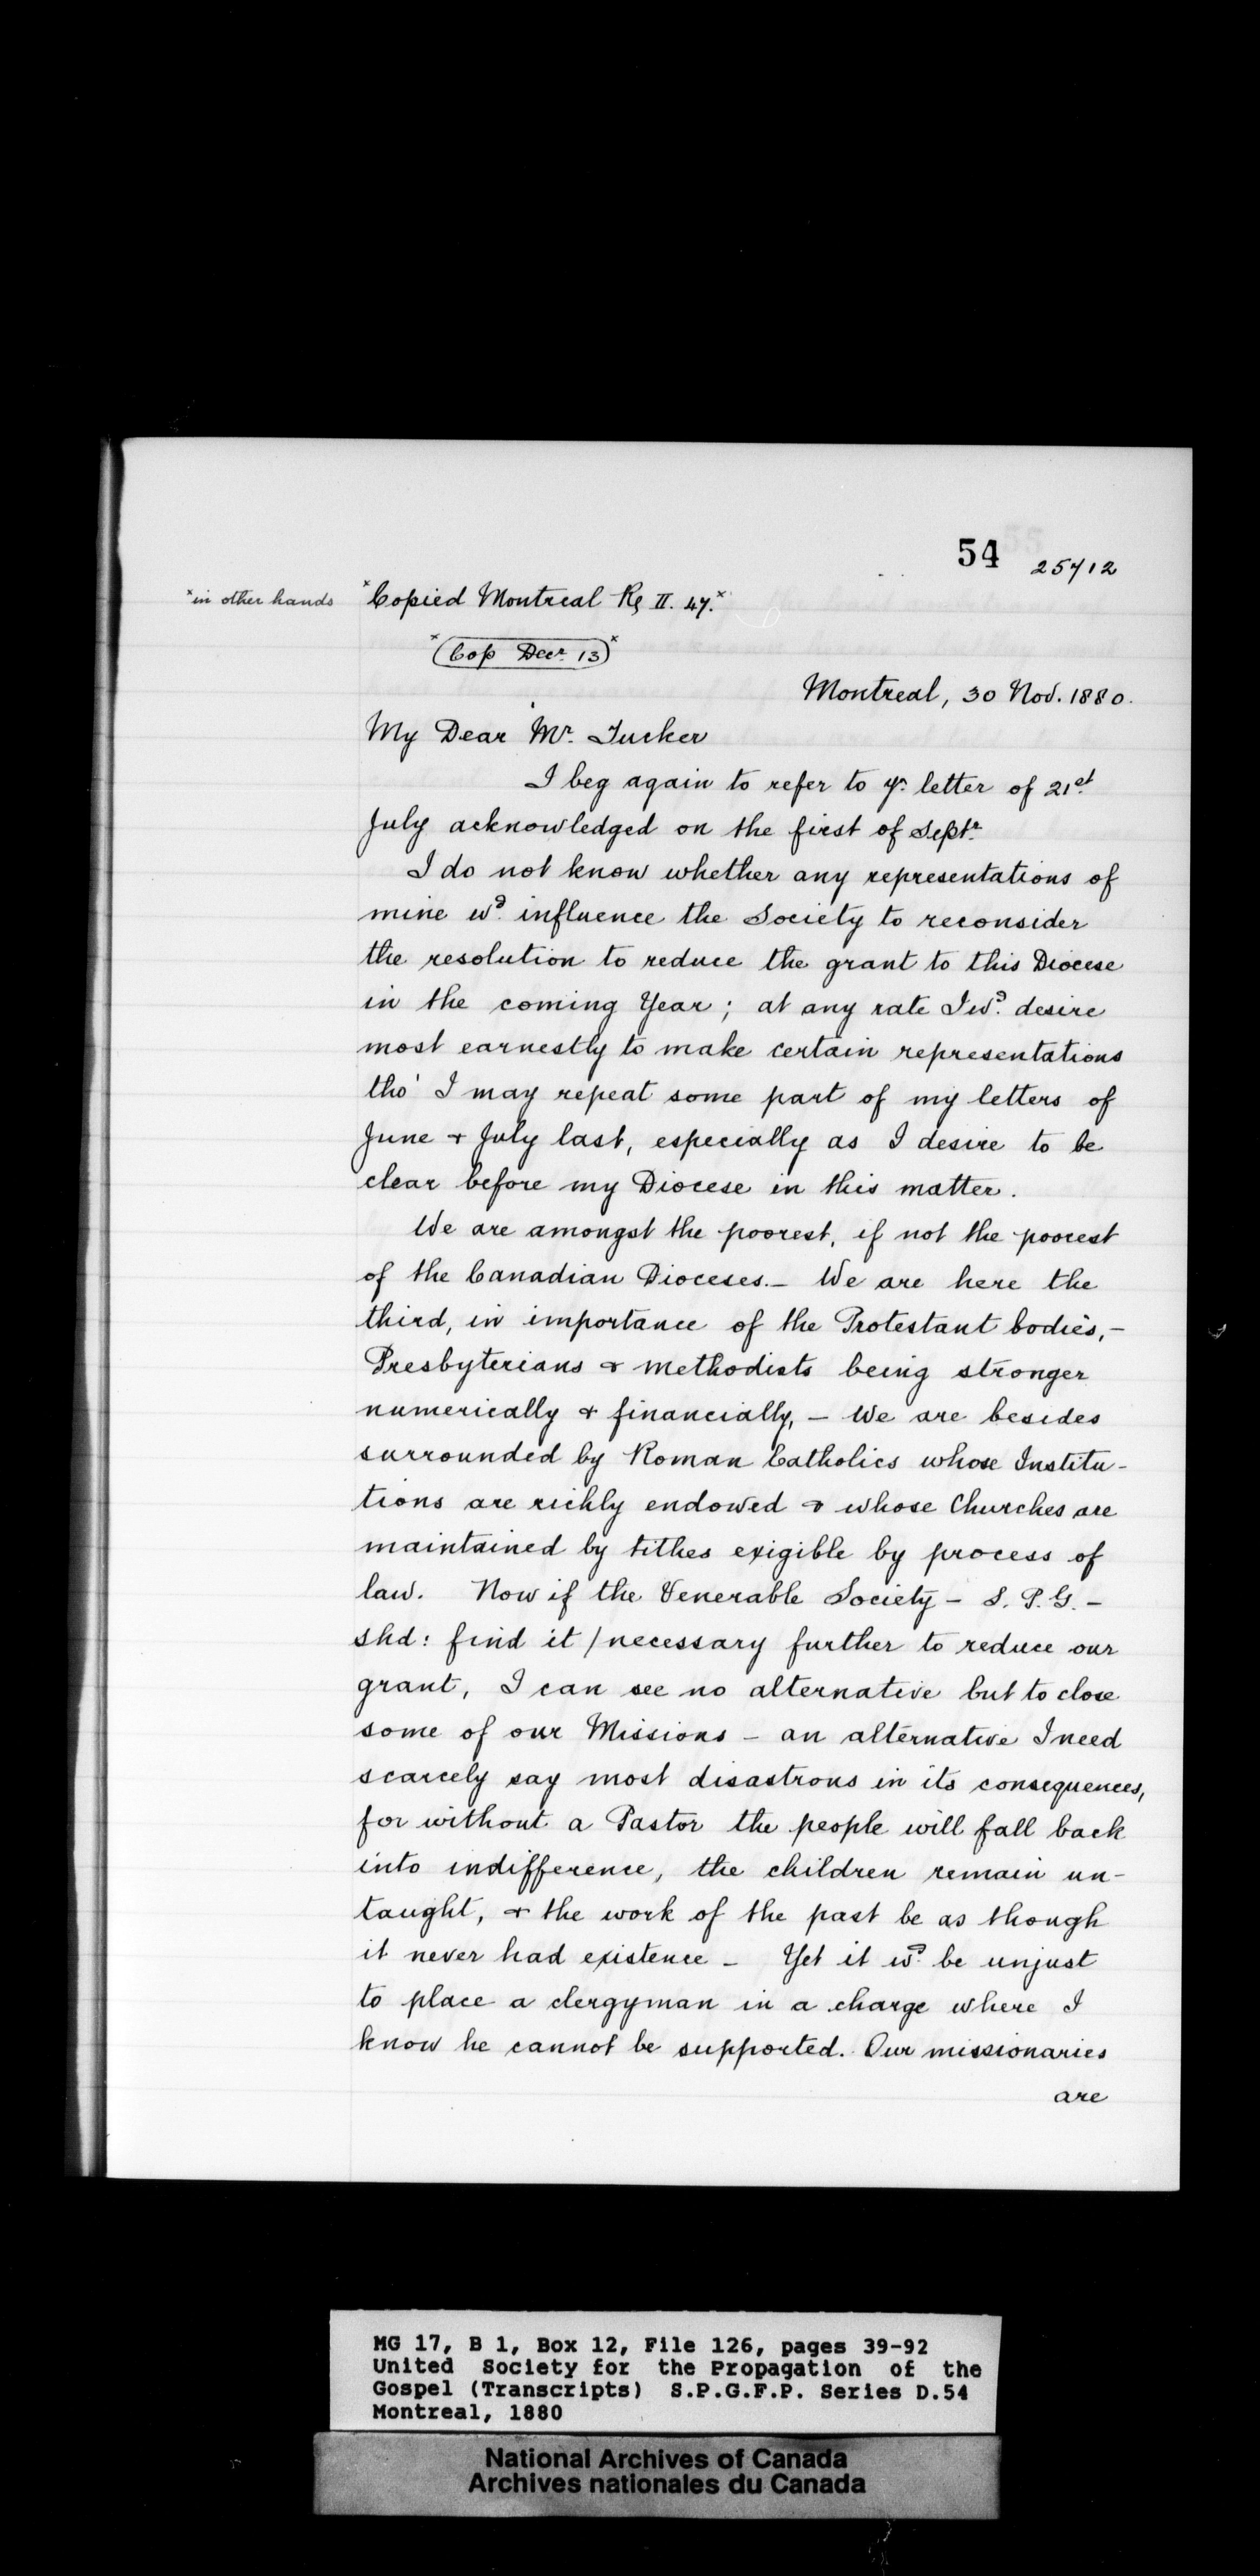 54
25712
*in other hands
*Copied Montreal Rg II. 47.*
*(Cop Decr. 13)*
Montreal, 30 Nov. 1880.
My Dear Mr. Tucker
I beg again to refer to yr. letter of 21st.
July acknowledged on the first of Septr.
I do not know whether any representations of
mine wd. influence the Society to reconsider
the resolution to reduce the grant to this Diocese
in the coming Year; at any rate I wd. desire
most earnestly to make certain representations
tho' I may repeat some part of my letters of
June & July last, especially as I desire to be
clear before my Diocese in this matter.
We are amongst the poorest, if not the poorest
of the Canadian Dioceses. – We are here the
third, in importance of the Protestant bodies, –
Presbyterians & Methodists being stronger
numerically & financially, – We are besides
surrounded by Roman Catholics whose Institu-
tions are richly endowed & whose Churches are
maintained by tithes exigible by process of
law. Now if the Venerable Society – S. P. G. –
shd: find it / necessary further to reduce our
grant, I can see no alternative but to close
some of our Missions – an alternative I need
scarcely say most disastrous in its consequences,
for without a Pastor the people will fall back
into indifference, the children remain un-
taught, & the work of the past be as though
it never had existence – Yet it wd. be unjust
to place a clergyman in a charge where I
know he cannot be supported. Our missionaries
are
MG 17, B 1, Box 12, File 126, pages 39-92
United Society for the Propagation of the
Gospel (Transcripts) S.P.G.F.P. Series D.54
Montreal, 1880
National Archives of Canada
Archives nationales du Canada